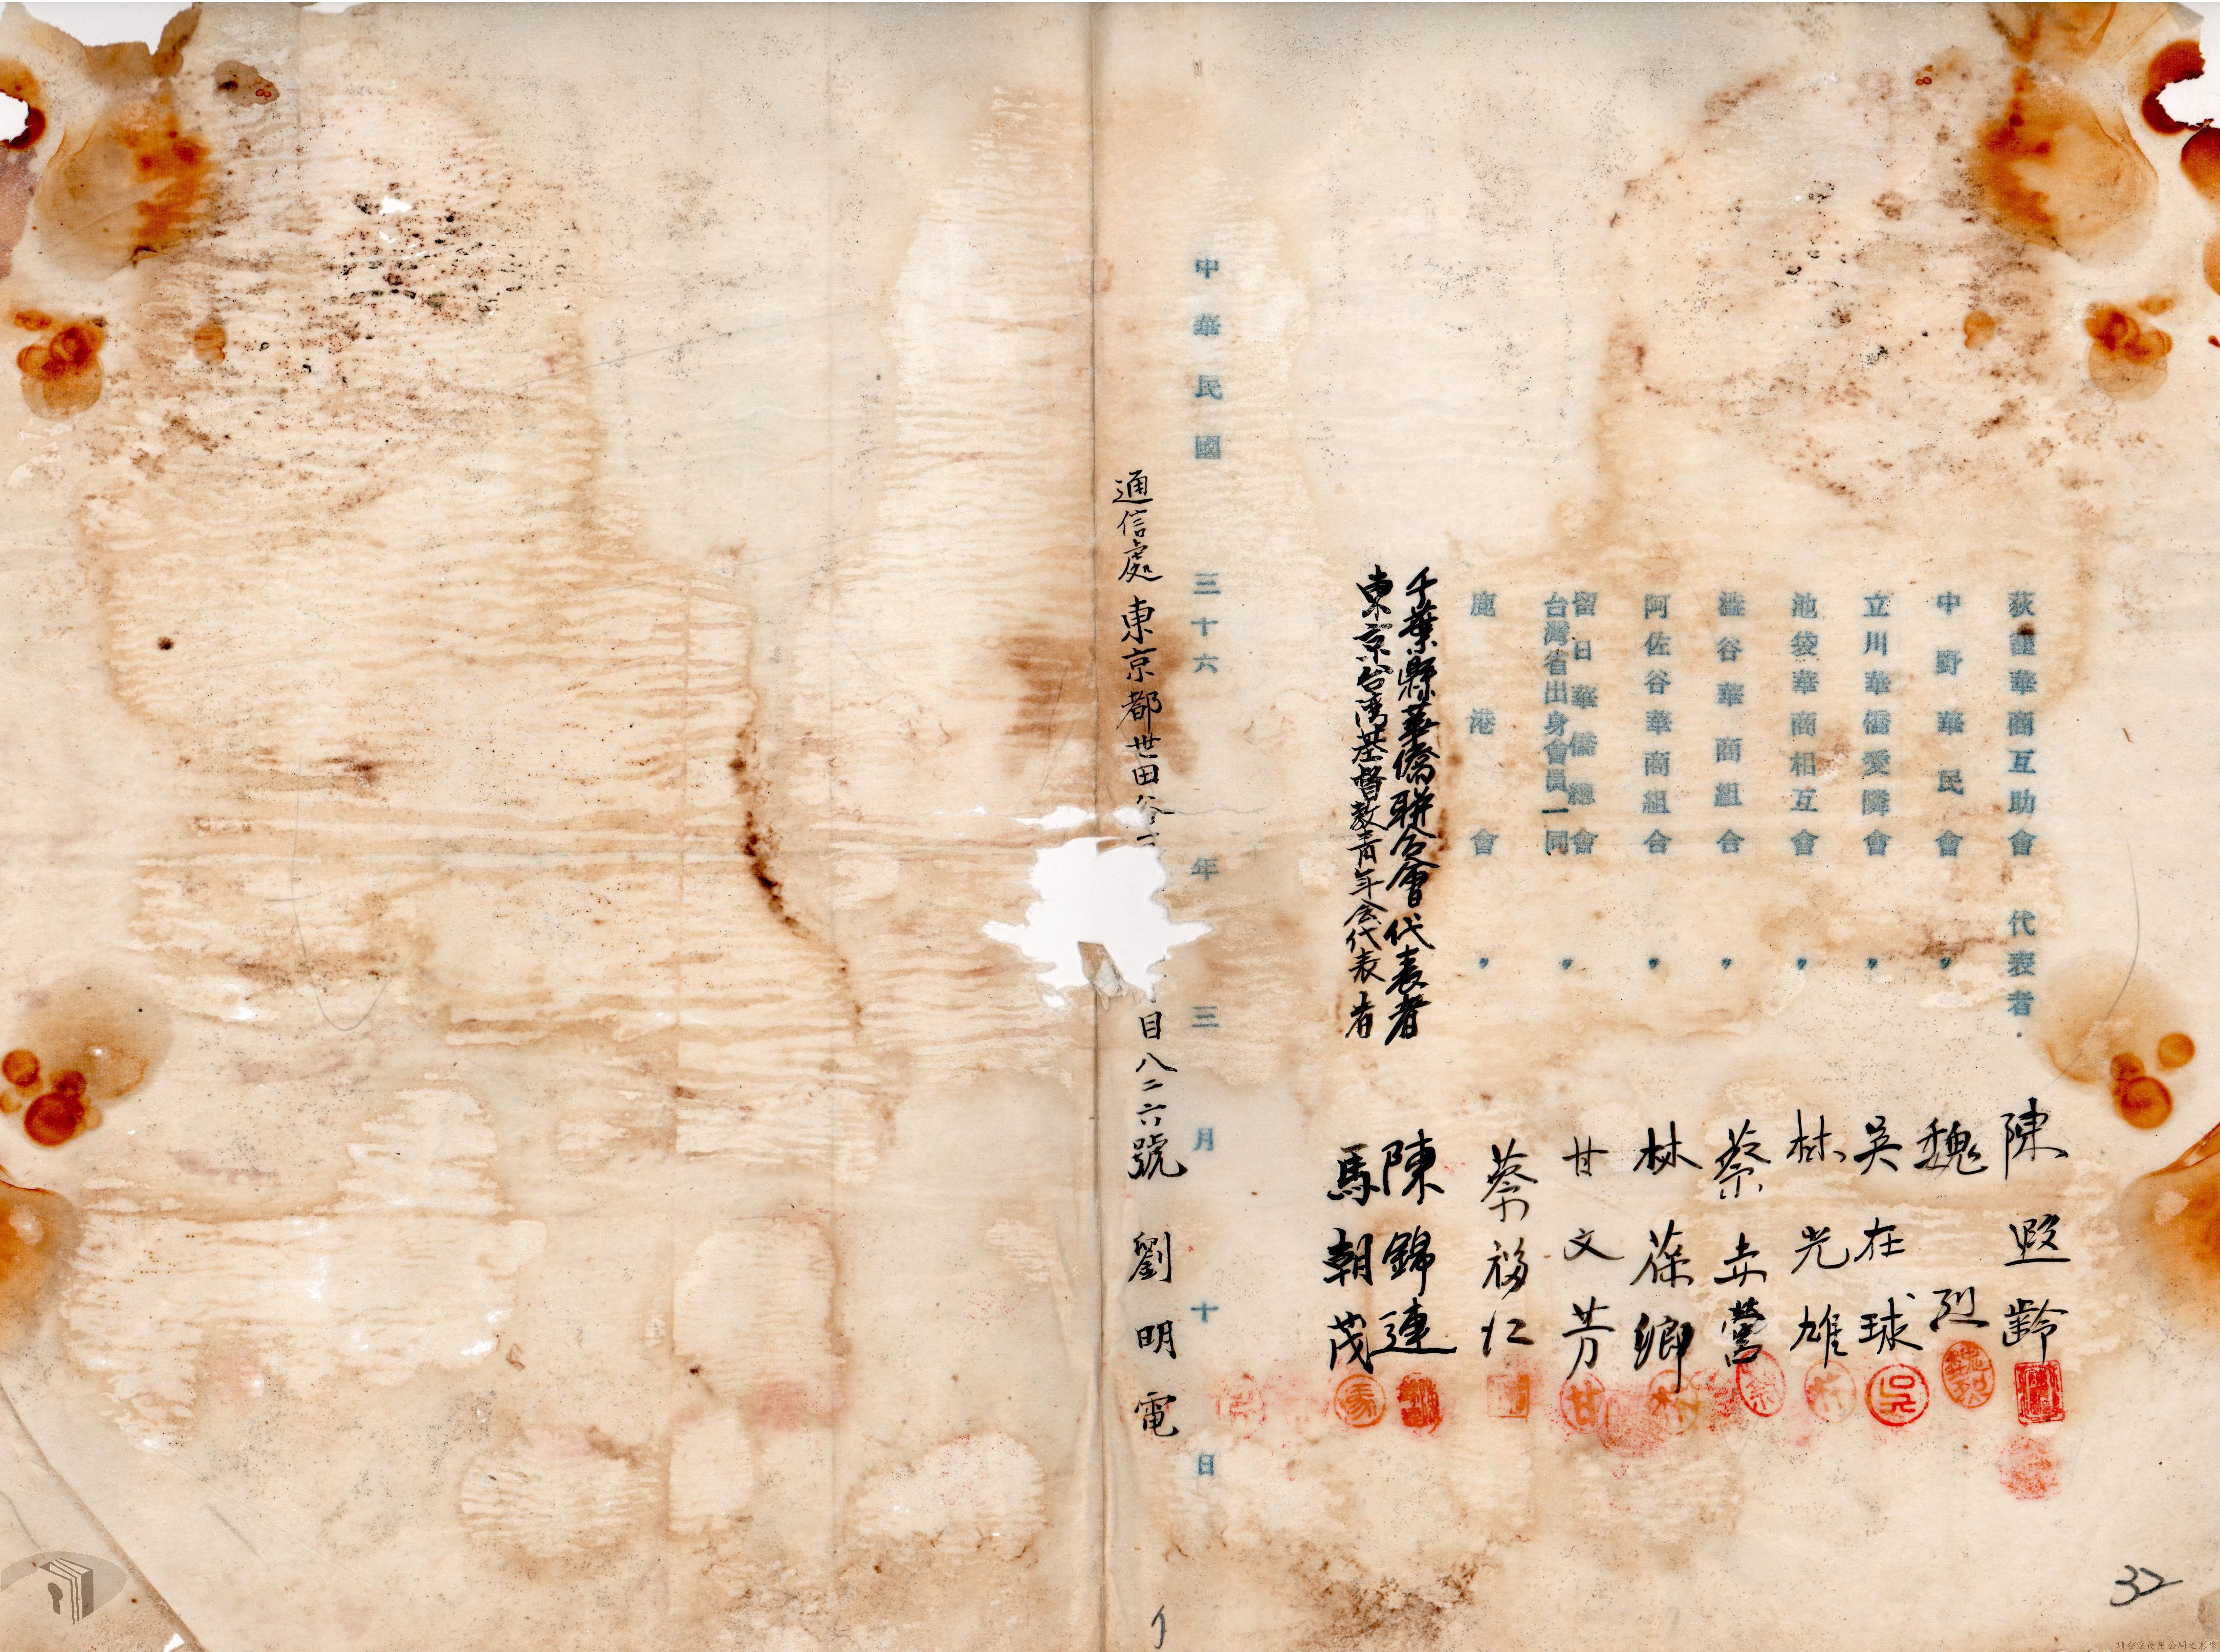 荻窪華商互助會 代表者 陳遐齡
中野華民會 〃 魏烈
立川華僑愛隣會 〃 吳在球
池袋華商相互會 〃 林光雄
澁谷華商組合 〃 蔡鶯
阿佐谷華商組合 〃 林葆卿
留日華僑總會
台灣省出身會員一同 〃 甘文芳
鹿港會 〃 蔡福仁
千葉縣華僑聯合會代表者 陳錦連
東京台湾基督教青年会代表者 馬朝茂
中華民國三十六年三月十日
通信處 東京都世田谷 目八二六號 劉明電
32